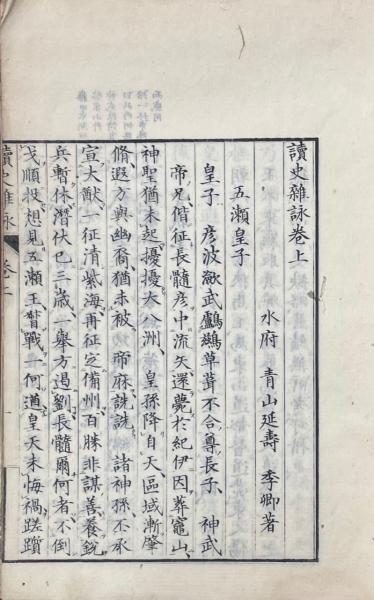 讀史雜詠卷上
水府 青山延壽 季卿著
五瀬皇子
皇子彦波瀲武鸕鶿草葺不合尊長子 神武
帝兄偕征長髓彦中流矢還薨於紀伊因葬竈山
神聖猶未起擾擾大八洲 皇孫降自天區域漸肇
脩遐方與幽裔猶未被 帝庥詵詵諸神孫丕承
宣大猷一征清紫海再征定備州百勝非謀善養銳
兵暫休潛伏已三歳一舉方遏劉長髓爾何者不倒
戈順投想見五瀬王督戰一何道皇天未悔禍蹉躓
讀史雜詠 卷上